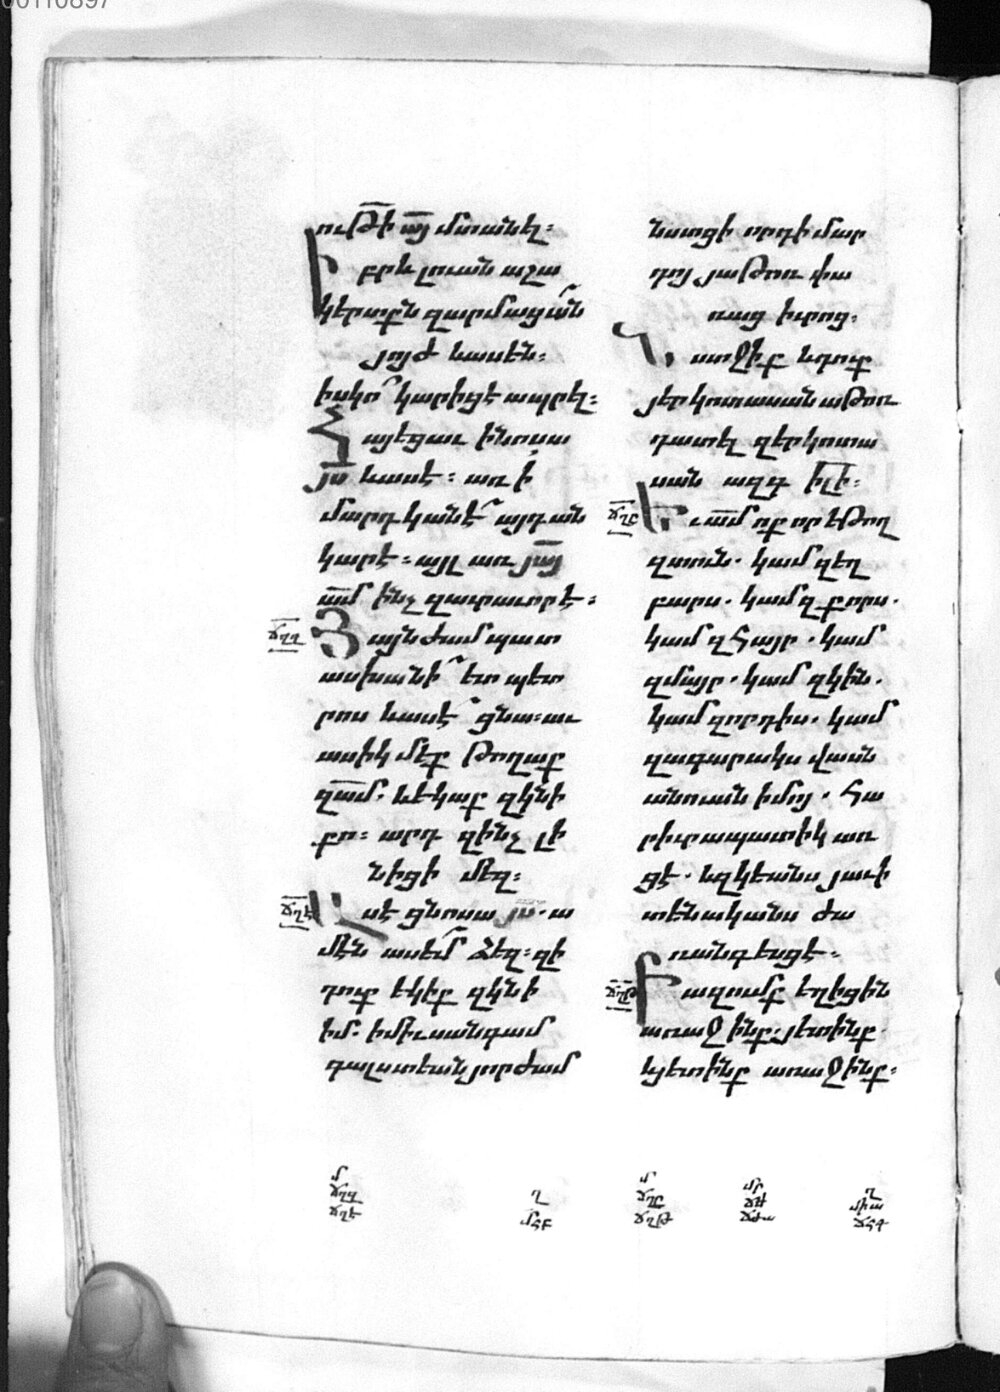 00110897
ութի այ մտանել։
Իբրև լուան աշա
կերտքն զարմացան
յոյժ և ասեն։
իսկ ո՞ կարիցէ ապրել։
Հայեցաւ ի նոսա
յս և ասէ։ առ ի
մարդկանէ այդ ան
կարէ։ այլ առ յայ
ամ ինչ զաւրաւոր է։
ճղգ
Յայնժամ պատ
ասխանի ետ պետ
րոս և ասէ ցնա։ աւ
ասիկ մեք թողաք
զամ. և եկաք զկնի
քո։ արդ զինչ լի
նիցի մեզ։
ճղէ
Եւ ասէ ցնոսա յս. ա
մէն ասեմ ձեզ։ զի
դուք եկիք զկնի
իմ. ի միւսանգամ
գալստեանն յորժամ
նստցի որդի մար
դոյ յաթոռ փա
ռաց իւրոց։
Նստջիք և դուք
յերկոտասան աթոռ
դատել զերկոտա
սան ազգ իլի։
ճղը
Եւ ամ ոք որ եթող
զտուն. կամ զեղ
բարս. կամ զքորս.
կամ զհայր. կամ
զմայր. կամ զկին.
կամ զորդիս. կամ
զագարակս վասն
անուան իմոյ. հա
րիւրապատիկ առ
ցէ. և զկեանս յաւի
տենականս ժա
ռանգեսցէ։
ճղթ
Բազումք եղիցին
առաջինք. յետինք.
և յետինք առաջինք։
մ
ճղգ
ճղէ
ղ
մ
ճղը
ճղթ
մր
ղ